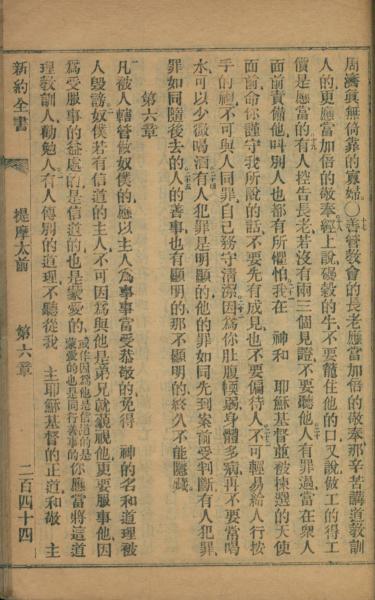 周濟眞無倚靠的寡婦、○善管教會的長老應當加倍的敬奉那辛苦講道教訓
人的更應當加倍的敬奉經上說碭穀的牛不要籠住他的口又說做工的得工
價是應當的有人控告長老若沒有兩三個見證不要聽他人有罪過當在衆人
面前責備他叫別人也都有所懼怕我在 神和 耶穌基督並被揀選的天使
面前命你謹守我所說的話不要先有成見也不要偏待人不可輕易給人行按
手的禮不可與人同罪自己務守清潔因爲你肚腹輭弱身體多病再不要當喝
水可以少微喝酒有人犯罪是明顯的他的罪如同先到案前受判斷有人犯罪
罪如同隨後去的人的善事也有顯明的那不顯明的終久不能隱藏
第六章
凡被人轄管做奴僕的應以主人爲事事當受恭敬的免得 神的名和道理被
人毀謗奴僕若有信道的主人不可因爲與他是弟兄就藐視他更要服事他因
爲受服事的益處的是信道的也是蒙愛的或作因爲他是信道的是蒙愛的也是同行善事的你應當將這道
理教訓人勸勉人有人傳別的道理不聽從我 主耶穌基督的正道和敬 主
新約全書 提摩太前 第六章 二百四十四